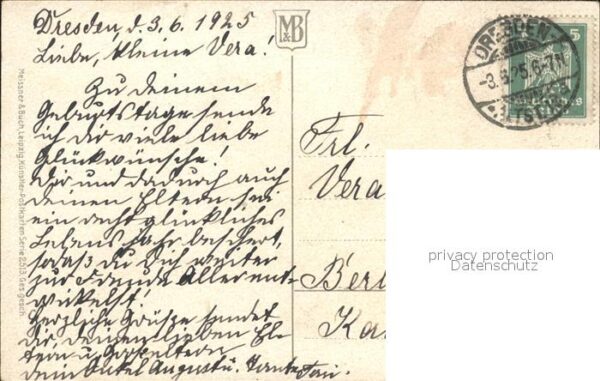 Dresden, d. 3.6.1925
Liebe, kleine Vera!
Zu deinem
Geburtstage sende
ich Dir viele liebe
Glückwünsche!
Dir und dadurch auch
deinen Eltern sei
ein recht glückliches
Lebensjahr beschert,
sodaß du Dich weiter
zur Freude Aller ent-
wickelst!
Herzliche Grüße sendet
Dir, deinen lieben El-
tern u. Großeltern
dein Onkel August u. Tante
M&B
Meissner & Buch, Leipzig, Künstler-Postkarten Serie 2513. Ges. gesch.
DRESDEN-
-3.6.25.6-7N
ALTST.
5
Frl.
Vera
Berl
Ka
privacy protection
Datenschutz